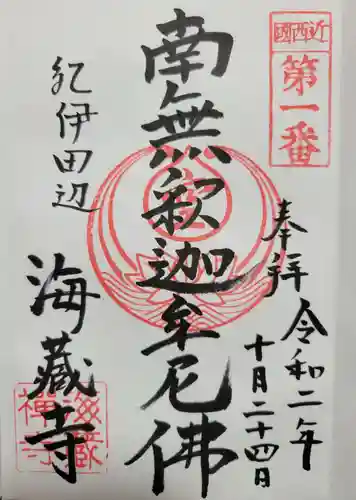 近西国
第一番
奉拝
令和二年
十月二十四日
南無釈迦牟尼佛
紀伊田辺
海藏寺
海藏
禅寺